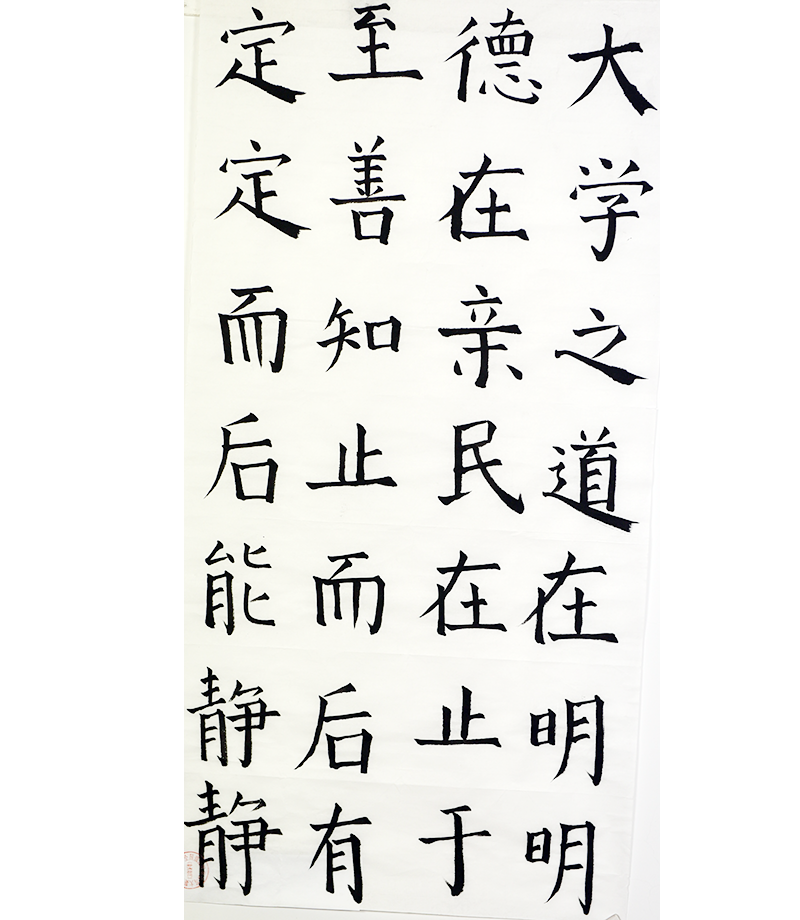 大学之道在明明
德在亲民在止于
至善知止而后有
定定而后能静静